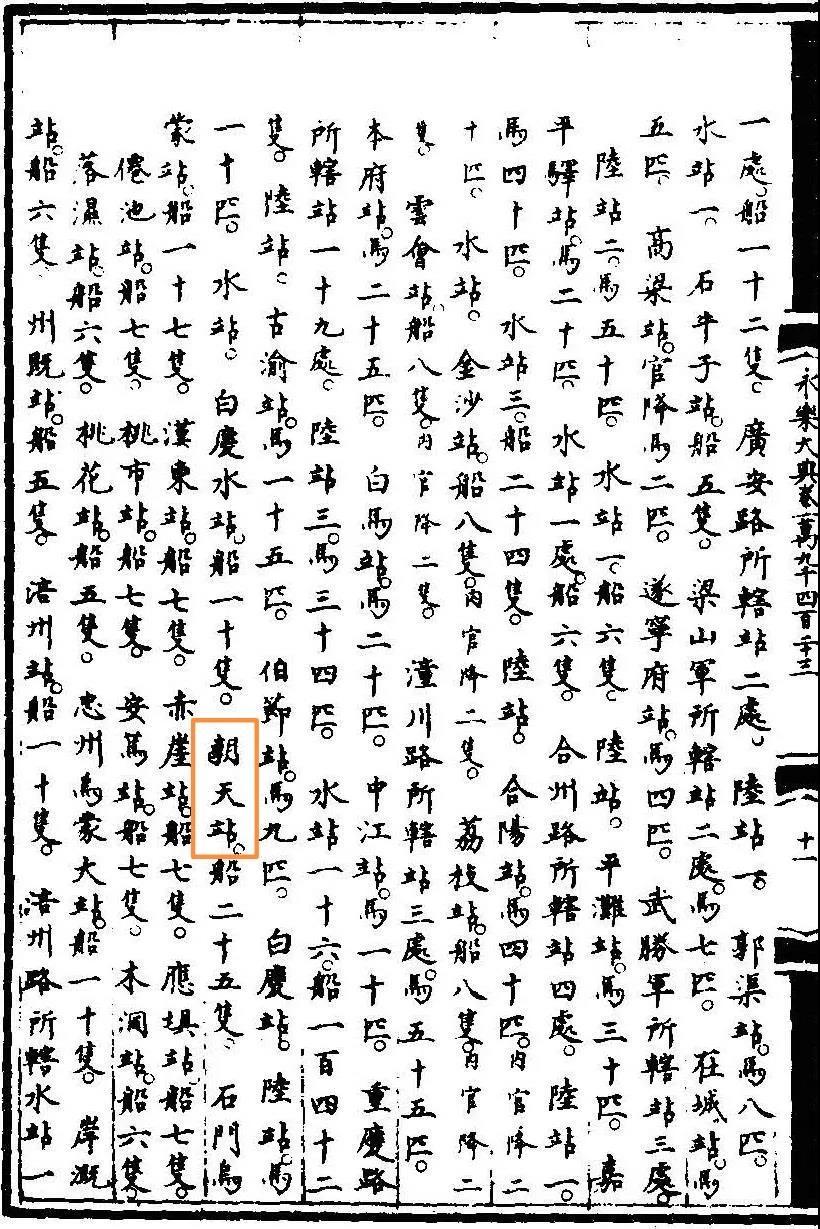 永樂大典卷一萬九千四百二十三
十一
一處。船一十二隻。廣安路所轄站二處。陸站一。郭渠站。馬八匹。
水站一。石牛子站。船五隻。梁山軍所轄站二處。馬七匹。在城站。馬
五匹。高梁站。官降馬二匹。遂寧府站。馬四匹。武勝軍所轄站三處。
陸站二。馬五十匹。水站一。船六隻。陸站。平灘站。馬三十匹。嘉
平驛站。馬二十匹。水站一處。船六隻。合州路所轄站四處。陸站一。
馬四十匹。水站三。船二十四隻。陸站。合陽站。馬四十匹。內官降二
十匹。水站。金沙站。船八隻。內官降二隻。荔枝站。船八隻。內官降二
隻。雲會站。船八隻。內官降二隻。潼川路所轄站三處。馬五十五匹。
本府站。馬二十五匹。白馬站。馬二十匹。中江站。馬一十匹。重慶路
所轄站一十九處。陸站三。馬三十四匹。水站一十六。船一百四十二
隻。陸站。古渝站。馬一十五匹。伯節站。馬九匹。白慶站。陸站。馬
一十匹。水站。白慶水站。船一十隻。朝天站。船二十五隻。石門馬
蒙站。船一十七隻。漢東站。船七隻。赤崖站。船七隻。應垻站船七隻。
僊池站。船七隻。桃市站。船七隻。安篤站。船七隻。木洞站。船六隻。
落濕站。船六隻。桃花站。船五隻。忠州馬蒙大站。船一十隻。岸溉
站。船六隻。州既站。船五隻。涪州站。船一十隻。涪州路所轄水站一